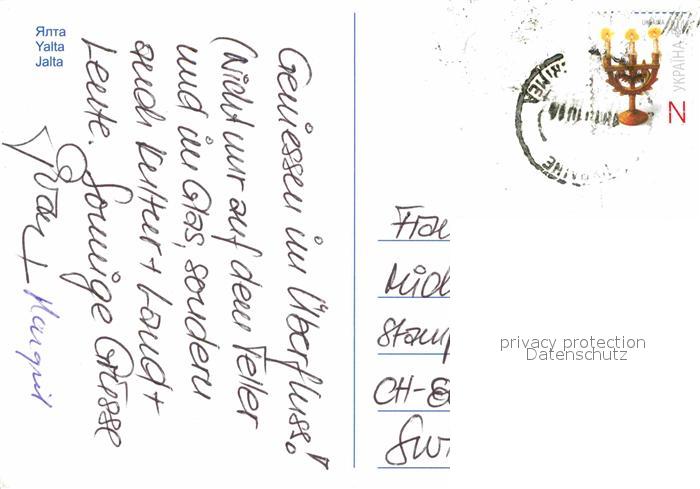 Ялта
Yalta
Jalta
Geniessen im Überfluss!
(Nicht nur auf dem Teller
und im Glas, sondern
auch Kultur + Land +
Leute. Sonnige Grüsse
Yvan +
УКРАЇНА
N
privacy protection
Datenschutz
CH-